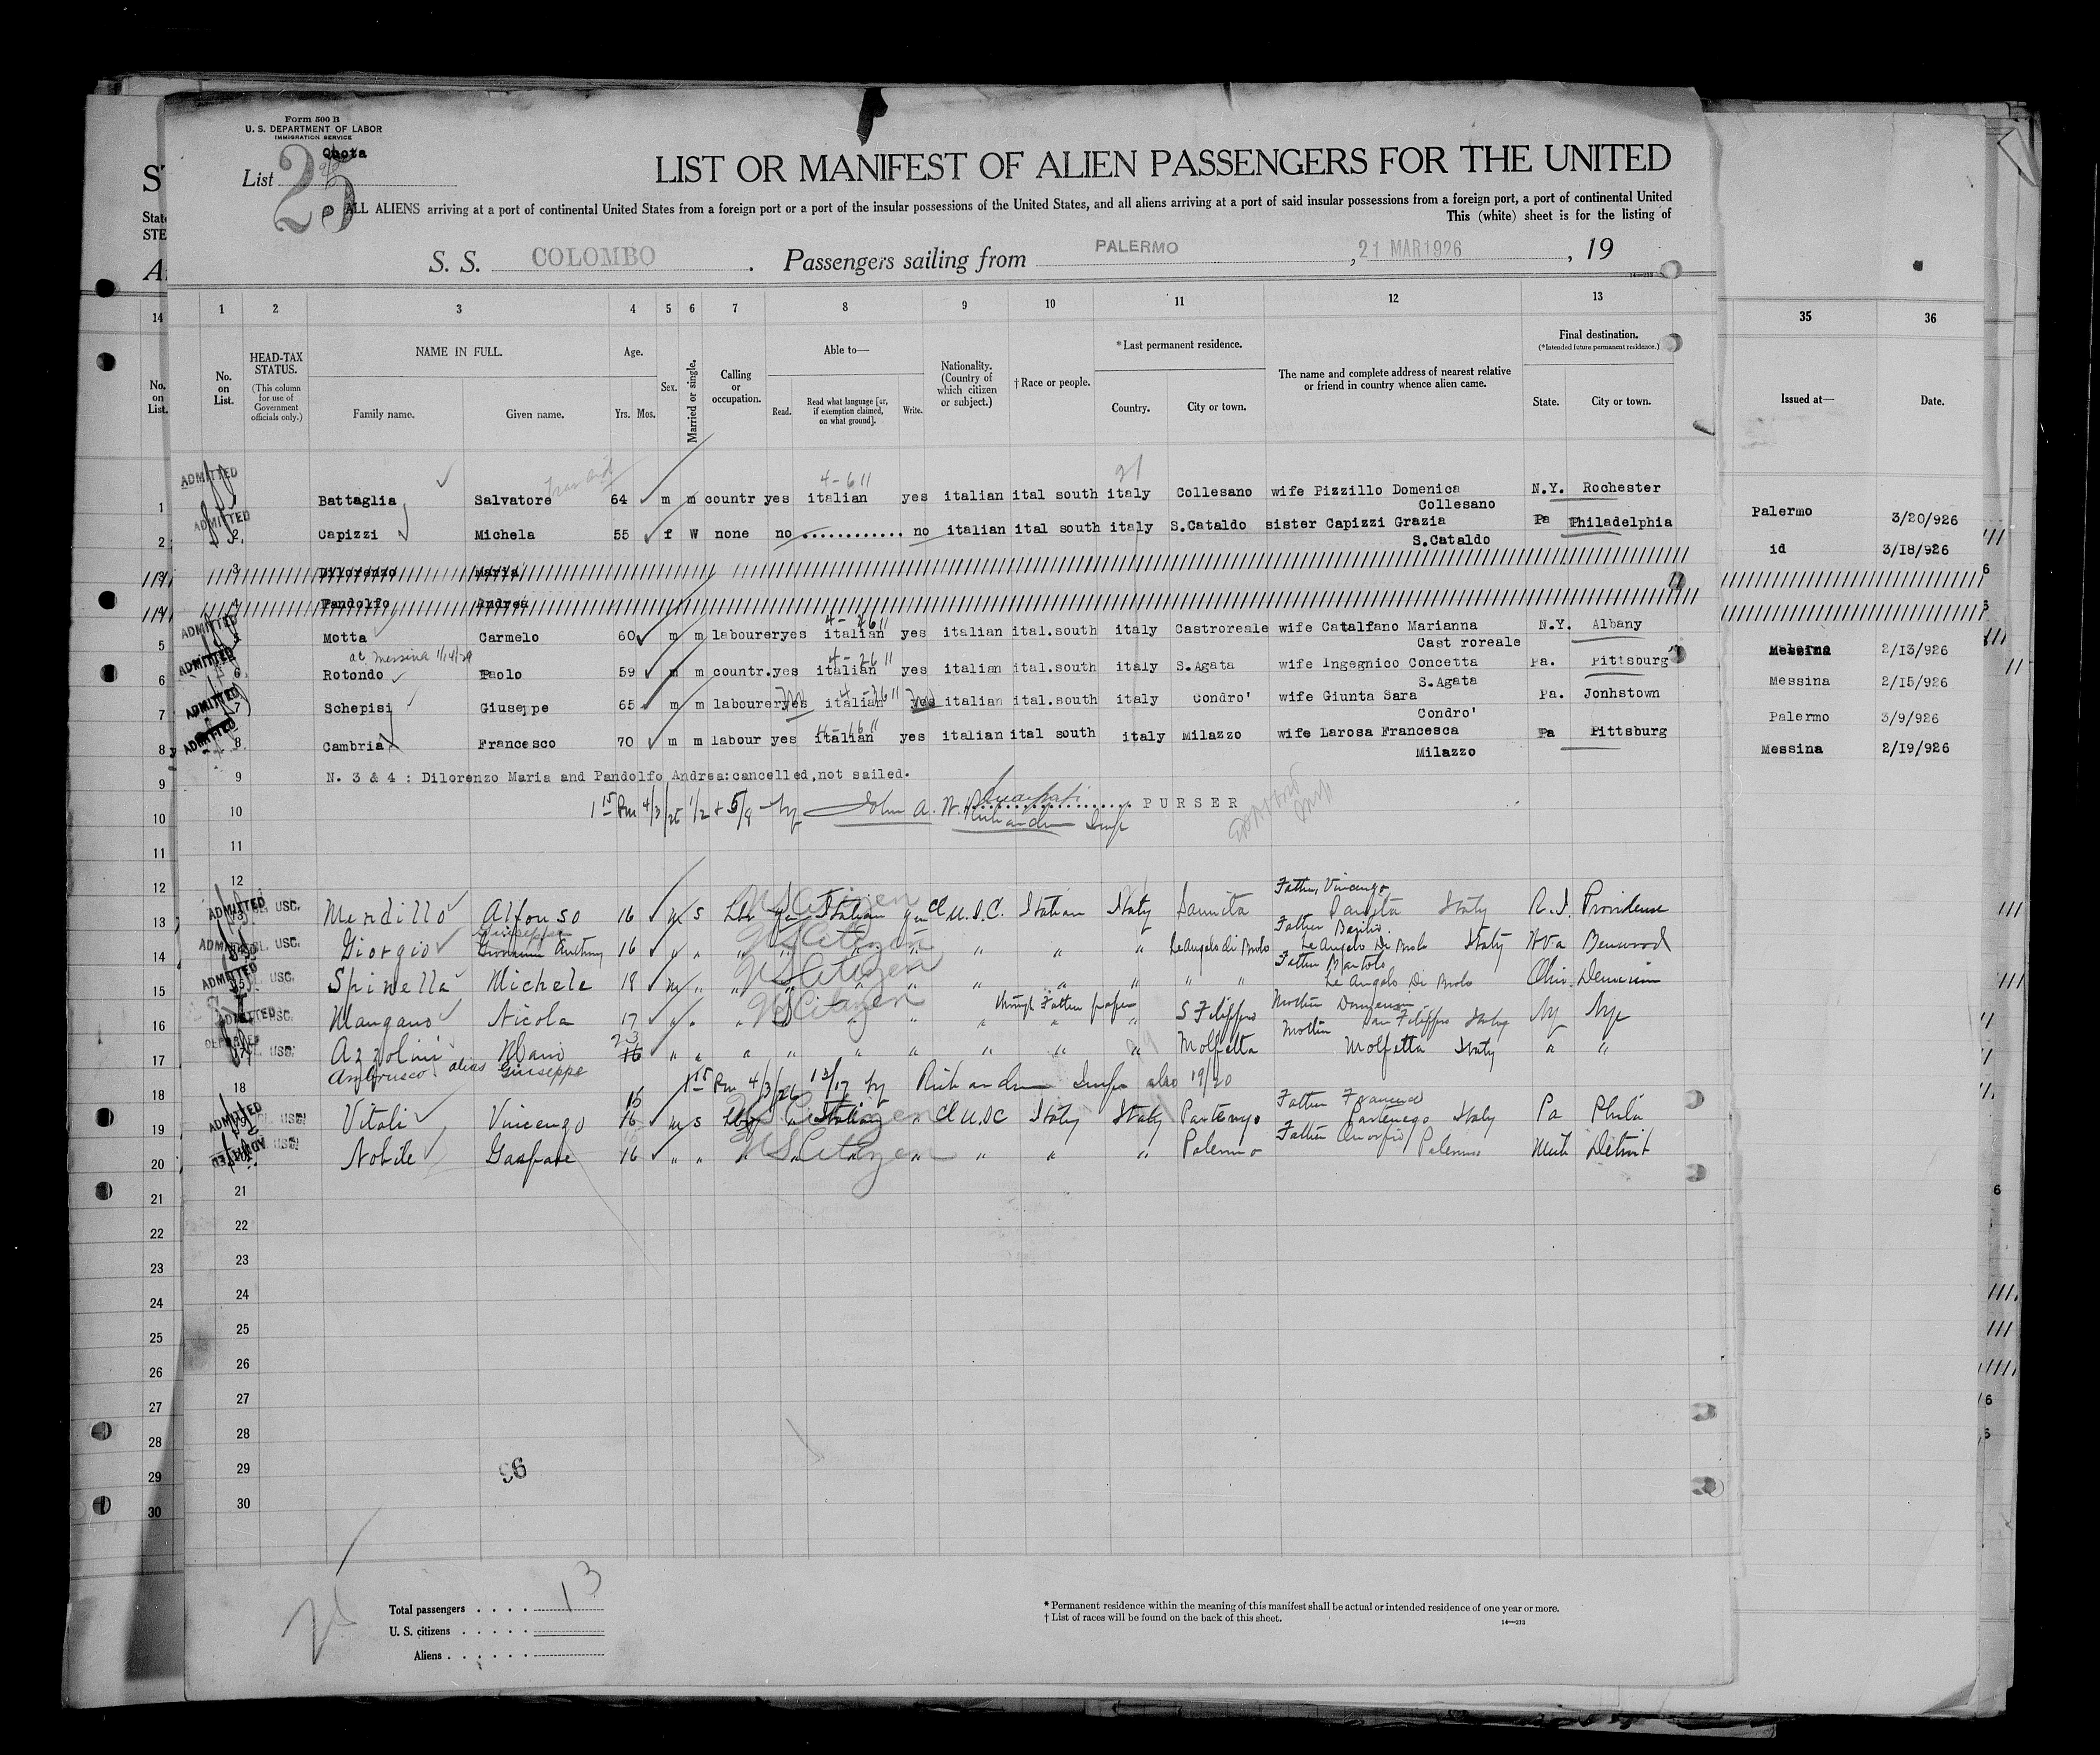 Form 500 B
U. S. DEPARTMENT OF LABOR
IMMIGRATION SERVICE
Quota
List 25
LIST OR MANIFEST OF ALIEN PASSENGERS FOR THE UNITED
ALL ALIENS arriving at a port of continental United States from a foreign port or a port of the insular possessions of the United States, and all aliens arriving at a port of said insular possessions from a foreign port, a port of continental United
This (white) sheet is for the listing of
S. S. COLOMBO. Passengers sailing from PALERMO, 21 MAR1926, 19
1 2 3 4 5 6 7 8 9 10 11 12 13 35 36
No. on List. HEAD-TAX STATUS. (This column for use of Government officials only.) NAME IN FULL. Family name. Given name. Age. Yrs. Mos. Sex. Married or single. Calling or occupation. Able to— Read. Read what language [or, if exemption claimed, on what ground]. Write. Nationality. (Country of which citizen or subject.) †Race or people. *Last permanent residence. Country. City or town. The name and complete address of nearest relative or friend in country whence alien came. Final destination. (*Intended future permanent residence.) State. City or town. Issued at— Date.
ADMITTED 1 Battaglia Salvatore 64 m m countr yes italian yes italian ital south italy Collesano wife Pizzillo Domenica Collesano N.Y. Rochester Palermo 3/20/926
ADMITTED 2 Capizzi Michela 55 f W none no ............ no italian ital south italy S.Cataldo sister Capizzi Grazia S.Cataldo Pa Philadelphia id 3/18/926
3 Dilorenzo Maria
4 Pandolfo Andrea
ADMITTED 5 Motta Carmelo 60 m m labourer yes italian yes italian ital.south italy Castroreale wife Catalfano Marianna Cast roreale N.Y. Albany 2/13/926
at Messina 1/14/29
ADMITTED 6 Rotondo Paolo 59 m m countr.yes italian yes italian ital.south italy S.Agata wife Ingegnico Concetta S.Agata Pa. Pittsburg Messina 2/15/926
ADMITTED 7 Schepisi Giuseppe 65 m m labourer yes italian yes italian ital.south italy Condro' wife Giunta Sara Condro' Pa. Jonhstown Palermo 3/9/926
ADMITTED 8 Cambria Francesco 70 m m labour yes italian yes italian ital south italy Milazzo wife Larosa Francesca Milazzo Pa Pittsburg Messina 2/19/926
9 N. 3 & 4 : Dilorenzo Maria and Pandolfo Andrea:cancelled,not sailed.
10 1 15 Pm 4/3/26 1/2 + 5/8 by John A. W. Richardson Insp PURSER
11
12
ADMITTED USC. 13 Mendillo Alfonso 16 m s Lbr yes Italian yes Cl U.S.C. Italian Italy Father, Vincenzo Italy R.I. Providence
ADMITTED USC. 14 Giorgio Giuseppe Giovanni Anthony 16 " " " " " " " " " Father Basilio Italy W Va Benwood
ADMITTED USC. 15 Spinella Michele 18 m " " " " " " " " " " Father Ohio
ADMITTED USC. 16 Mangano Nicola 17 " " " " " " " through Father papers " " S Filippo Mother San Filippo Italy Ny Nyc
USC. 17 Azzolini Mauro 23 16 " " " " " " " " " Molfetta Mother Molfetta Italy " "
18 Ambrusco alias Giuseppe 1 15 Pm 4/3/26 13/17 by Richardson Insp also 19/20
ADMITTED USC. 19 Vitali Vincenzo 16 m s Lbr " Italian " Cl U.SC Italy Italy Father Francesco Partenego Italy Pa Phila
ADMITTED USC. 20 Nobile Gaspare 16 " " " " " " " " " Palermo Father Onofrio Palermo Mich Detroit
US Citizen
US Citizen
US Citizen
US Citizen
US Citizen
US Citizen
21
22
23
24
25
26
27
28
29
30
96
Total passengers . . . . 13
U. S. citizens . . . . .
Aliens . . . . . .
* Permanent residence within the meaning of this manifest shall be actual or intended residence of one year or more.
† List of races will be found on the back of this sheet.
14—213